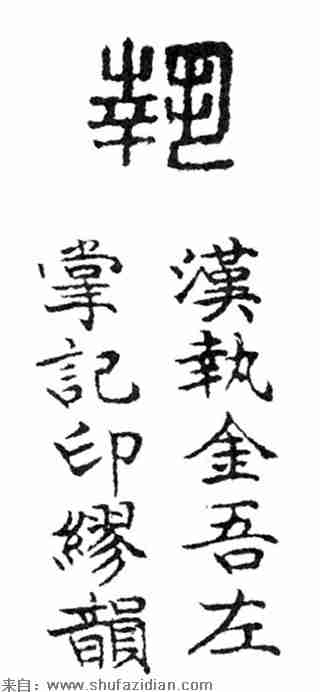 執
漢執金吾左
掌記印繆韻
来自：www.shufazidian.com